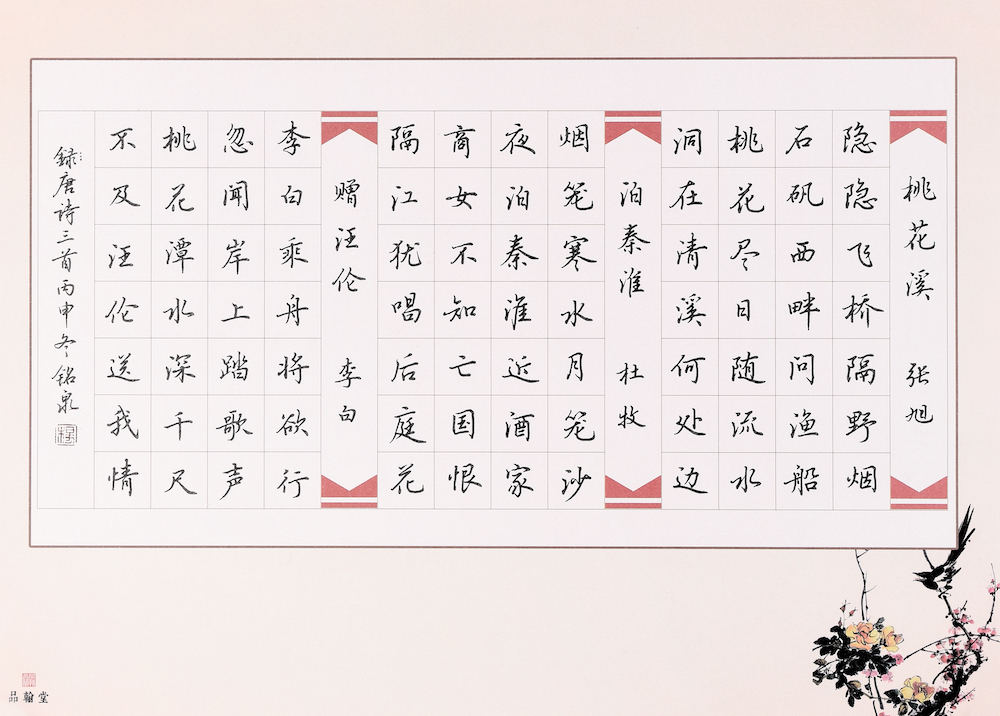 桃花溪 张旭
隐隐飞桥隔野烟
石矶西畔问渔船
桃花尽日随流水
洞在清溪何处边
泊秦淮 杜牧
烟笼寒水月笼沙
夜泊秦淮近酒家
商女不知亡国恨
隔江犹唱后庭花
赠汪伦 李白
李白乘舟将欲行
忽闻岸上踏歌声
桃花潭水深千尺
不及汪伦送我情
録唐诗三首丙申冬铭泉
品翰堂